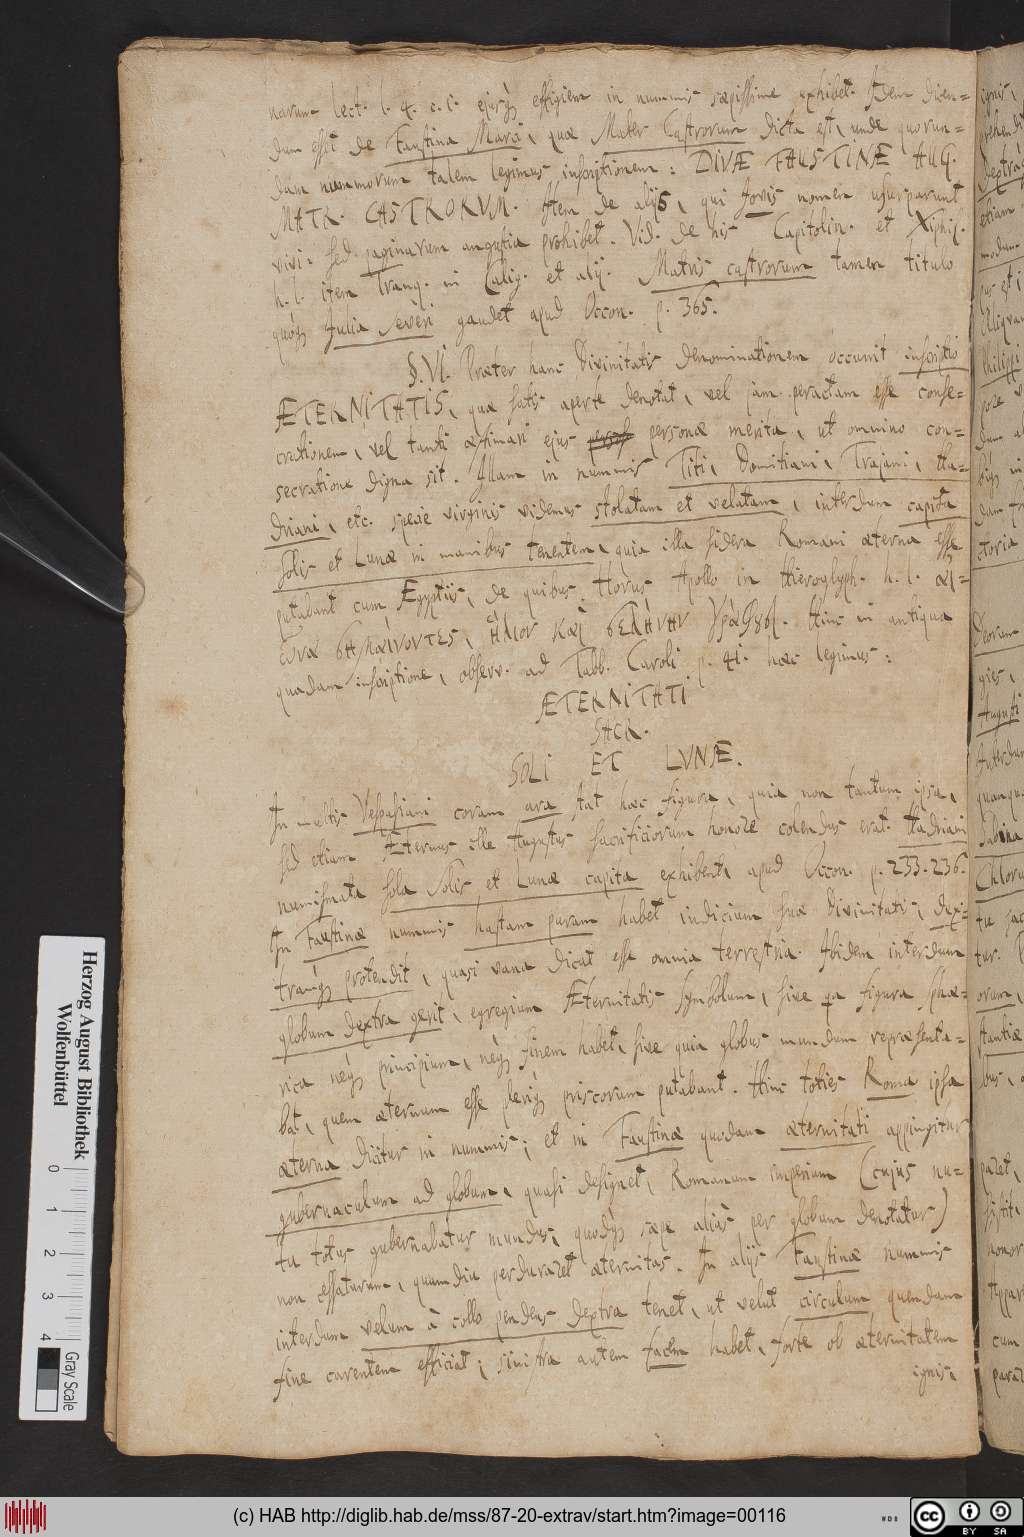 narum lect. l. q. c. l. ejusq; effigiem in nummis sæpissime exhibet. Idem dicen=
dum esset de Faustina Marci, quæ Mater Castrorum dicta est, unde quorun=
dam nummorum talem legimus inscriptionem: DIVÆ FAUSTINÆ AUG.
MATR. CASTRORVM. Item de alijs, qui Jovis nomen usurparunt
vivi: sed paginarum angustia prohibet. Vid. de his Capitolin. et Xiphil.
h. l. item Tranq. in Calig. et alij. Matris castrorum tamen titulo
quoq; Julia Severi gaudet apud Occon. p. 365.
§. VI. Præter hanc Divinitatis denominationem occurrit inscriptio
ÆTERNITATIS, quæ satis aperte denotat, vel jam peractam esse conse=
crationem, vel tanti æstimari ejus personæ merita, ut omnino con=
secratione digna sit. Illam in nummis Titi, Domitiani, Trajani, Ha=
driani, etc. specie virginis videmus stolatam et velatam, interdum capita
Solis et Lunæ in manibus tenentem, quia illa sidera Romani æterna esse
putabant cum Ægyptiis, de quibus Horus Apollo in Hieroglyph. h. l. αἰ=
ῶνα σημαίνοντες, ἥλιον καὶ σελήνην γράφουσι. Hinc in antiqua
quadam inscriptione, observ. ad Tabb. Caroli p. 41. hæc legimus:
ÆTERNITATI
SACR.
SOLI ET LVNÆ.
In multis Vespasiani coram ara stat hæc figura, quia non tantum ipsa,
sed etiam Æternus ille Augustus sacrificiorum honore colendus erat. Hadriani
numismata sola Solis et Lunæ capita exhibent, apud Occon. p. 233. 236.
In Faustinæ nummis hastam puram habet indicium suæ Divinitatis, dex=
tramq; protendit, quasi vana dicat esse omnia terrestria. Ibidem interdum
globum dextra gerit, egregium Æternitatis symbolum, sive qa figura sphæ=
rica neq; principium, neq; finem habet, sive quia globus mundum repræsenta=
bat, quem æternum esse pleriq; priscorum putabant. Hinc toties Roma ipsa
æterna dicitur in nummis; et in Faustinæ quodam æternitati appingitur
gubernaculum ad globum, quasi designet, Romanum imperium (cujus nu=
tu totus gubernabatur mundus, quodq; sæpe aliàs per globum denotatur)
non cessaturum, quamdiu perduraret æternitas. In alijs Faustinæ nummis
interdum velum à collo pendens dextra tenet, ut velut circulum quendam
fine carentem efficiat; sinistra autem facem habet, forte ob æternitatem
ignis,
Herzog August Bibliothek
Wolfenbüttel
0 1 2 3 4
Gray Scale
(c) HAB http://diglib.hab.de/mss/87-20-extrav/start.htm?image=00116
cc BY SA